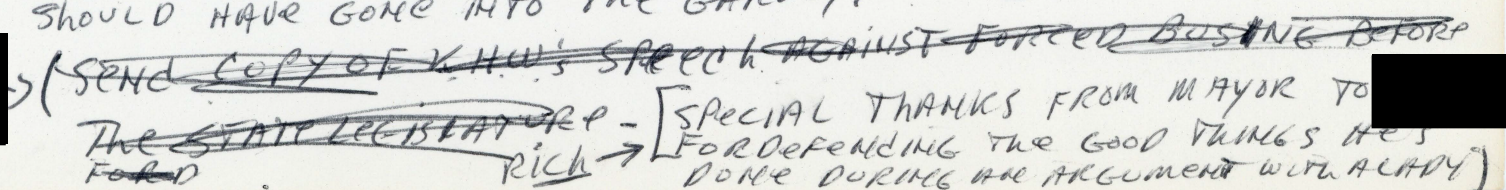 SHOULD HAVE GONE INTO THE
(SEND COPY OF KHW's SPEECH AGAINST FORCED BUSING BEFORE
The STATE LEGISLATURE - [SPECIAL THANKS FROM MAYOR TO
FORD RICH → FOR DEFENDING THE GOOD THINGS HE'S
DONE DURING AN ARGUMENT WITH A LADY)